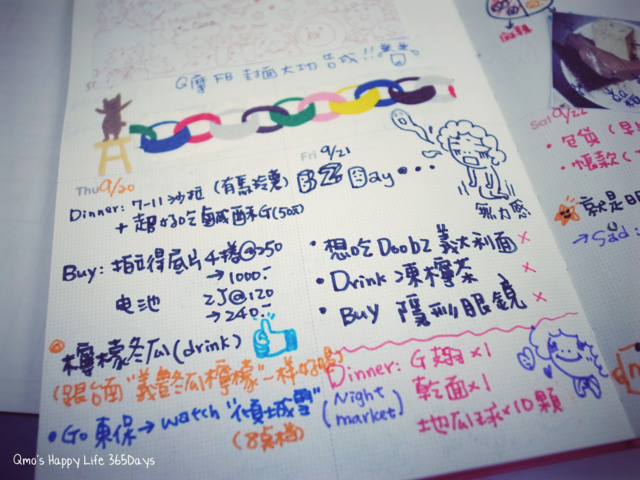 Q摩 FB 封面大功告成!!
Thu 9/20
Dinner: 7-11 沙拉 (有馬玲薯)
+ 超好吃鹹酥G(50元)
Buy: 拍立得底片4樣@250
→1000.-
电池 2J@120
→240.-
檸檬冬瓜(drink)
(跟台南"義豐冬瓜檸檬"一樣好喝)
Go 東保→watch "傾城雪"
Fri 9/21
BZ Day...
無力感
想吃Doobz義大利面 ×
Drink 凍檸茶 ×
Buy 隱形眼鏡 ×
Dinner: G翅×1
(Night market) 乾面×1
地瓜球×10顆
Sat 9/22
就是
→Sad:
Qmo's Happy Life 365Days